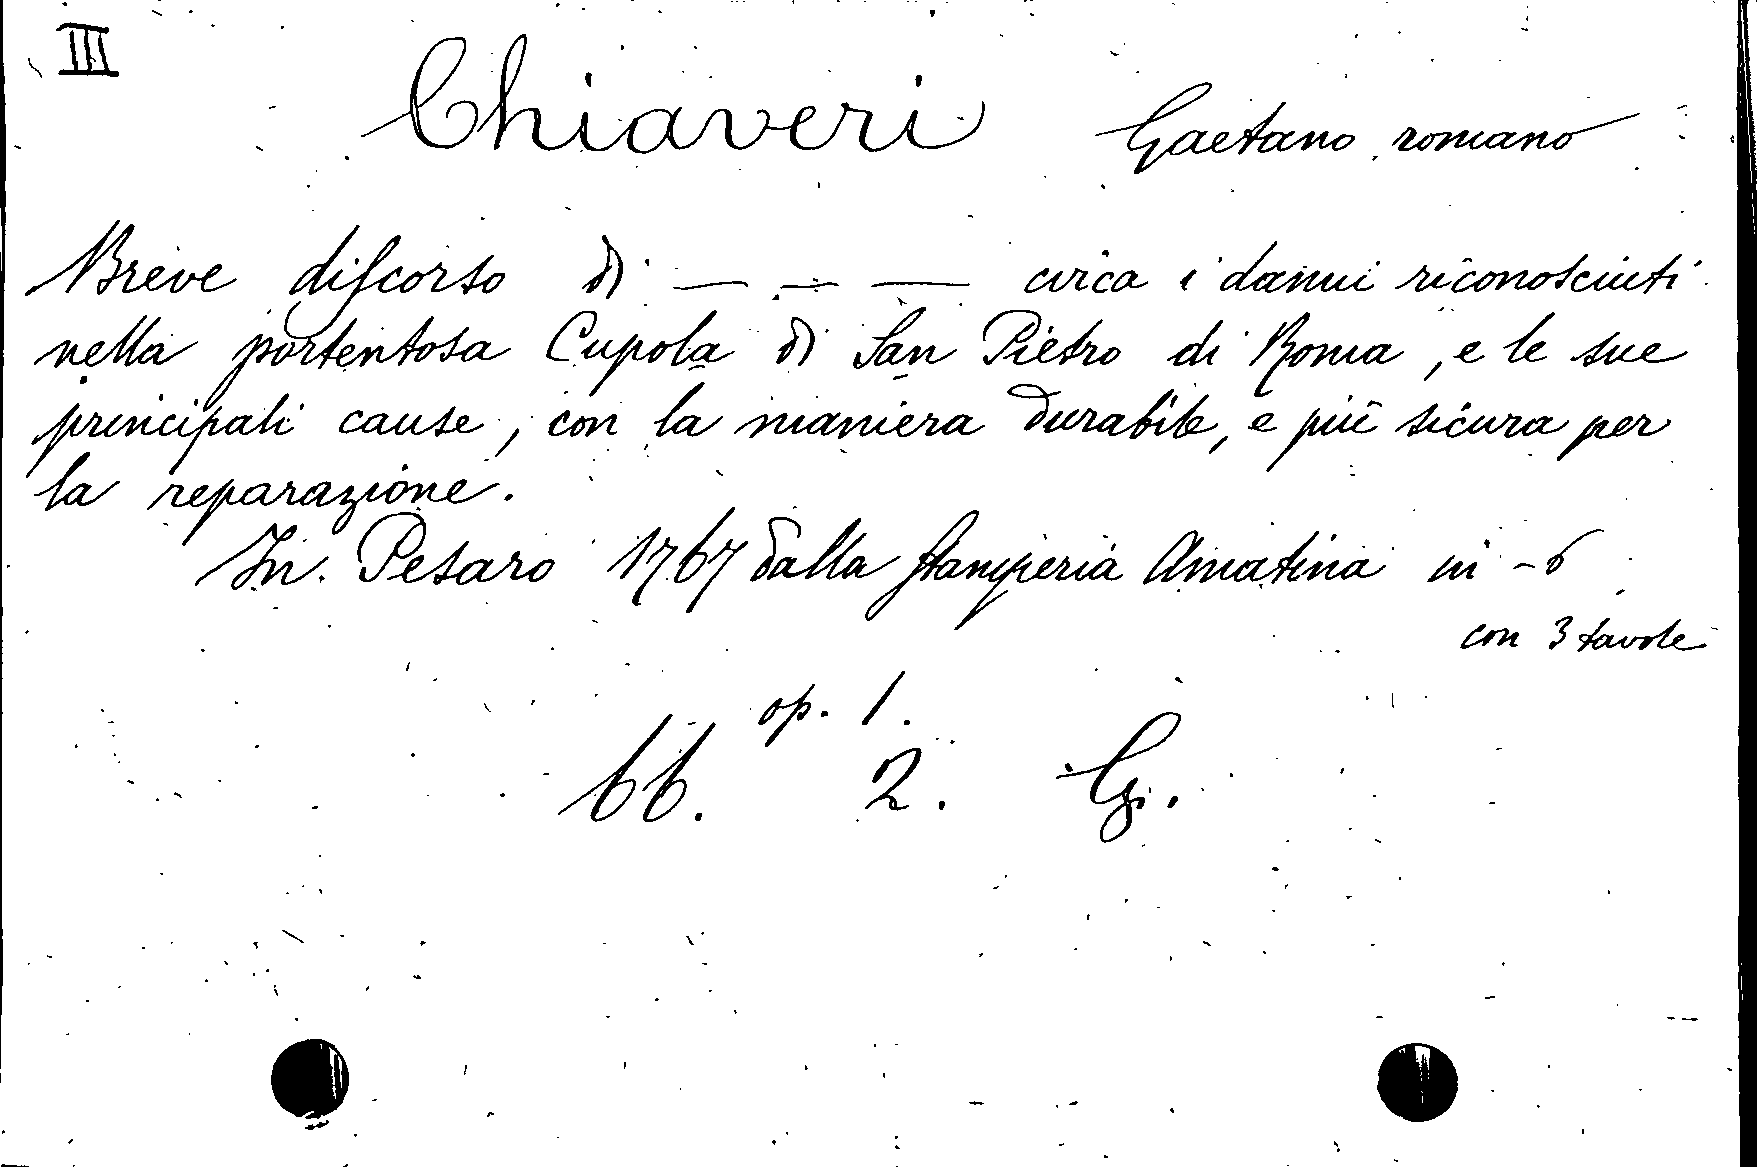 III
Chiaveri Gaetano romano
Breve diſcorso di — — — circa i danni riconosciuti
nella portentosa Cupola di San Pietro di Roma, e le sue
principali cause, con la maniera durabile, e più sicura per
la reparazione.
In Pesaro 1767 dalla ſtamperia Amatina in -6
con 3 tavole
op. 1.
66. 2.